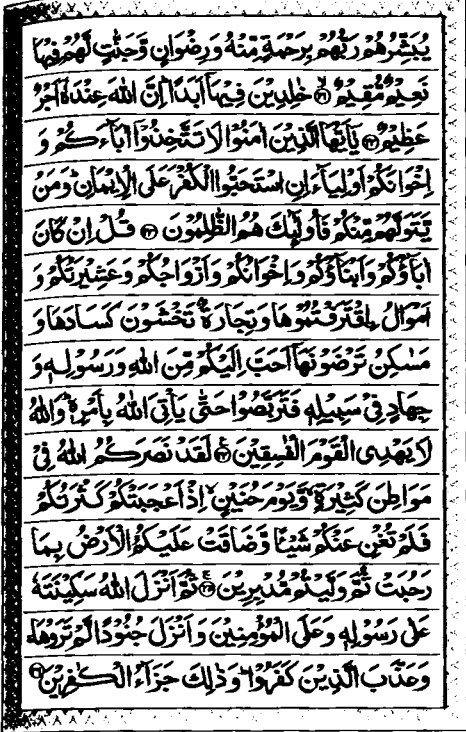 يُبَشِّرُهُمْ رَبُّهُمْ بِرَحْمَةٍ مِّنْهُ وَرِضْوَانٍ وَّجَنّٰتٍ لَّهُمْ فِيْهَا
نَعِيْمٌ مُّقِيْمٌ ۙ﴿۲۱﴾ خٰلِدِيْنَ فِيْهَاۤ اَبَدًا ؕ اِنَّ اللّٰهَ عِنْدَهٗۤ اَجْرٌ
عَظِيْمٌ ﴿۲۲﴾ يٰۤاَيُّهَا الَّذِيْنَ اٰمَنُوْا لَا تَتَّخِذُوْۤا اٰبَآءَكُمْ وَ
اِخْوَانَكُمْ اَوْلِيَآءَ اِنِ اسْتَحَبُّوا الْكُفْرَ عَلَى الْاِيْمَانِ ؕ وَمَنْ
يَّتَوَلَّهُمْ مِّنْكُمْ فَاُولٰٓئِكَ هُمُ الظّٰلِمُوْنَ ﴿۲۳﴾ قُلْ اِنْ كَانَ
اٰبَآؤُكُمْ وَاَبْنَآؤُكُمْ وَاِخْوَانُكُمْ وَاَزْوَاجُكُمْ وَعَشِيْرَتُكُمْ وَ
اَمْوَالُ ۨاقْتَرَفْتُمُوْهَا وَتِجَارَةٌ تَخْشَوْنَ كَسَادَهَا وَ
مَسٰكِنُ تَرْضَوْنَهَاۤ اَحَبَّ اِلَيْكُمْ مِّنَ اللّٰهِ وَرَسُوْلِهٖ وَ
جِهَادٍ فِيْ سَبِيْلِهٖ فَتَرَبَّصُوْا حَتّٰى يَاْتِيَ اللّٰهُ بِاَمْرِهٖ ؕ وَاللّٰهُ
لَا يَهْدِي الْقَوْمَ الْفٰسِقِيْنَ ﴿۲۴﴾ لَقَدْ نَصَرَكُمُ اللّٰهُ فِيْ
مَوَاطِنَ كَثِيْرَةٍ ۙ وَّيَوْمَ حُنَيْنٍ ۙ اِذْ اَعْجَبَتْكُمْ كَثْرَتُكُمْ
فَلَمْ تُغْنِ عَنْكُمْ شَيْـًٔا وَّضَاقَتْ عَلَيْكُمُ الْاَرْضُ بِمَا
رَحُبَتْ ثُمَّ وَلَّيْتُمْ مُّدْبِرِيْنَ ۚ﴿۲۵﴾ ثُمَّ اَنْزَلَ اللّٰهُ سَكِيْنَتَهٗ
عَلٰى رَسُوْلِهٖ وَعَلَى الْمُؤْمِنِيْنَ وَاَنْزَلَ جُنُوْدًا لَّمْ تَرَوْهَا ۚ
وَعَذَّبَ الَّذِيْنَ كَفَرُوْا ؕ وَذٰلِكَ جَزَآءُ الْكٰفِرِيْنَ ﴿۲۶﴾